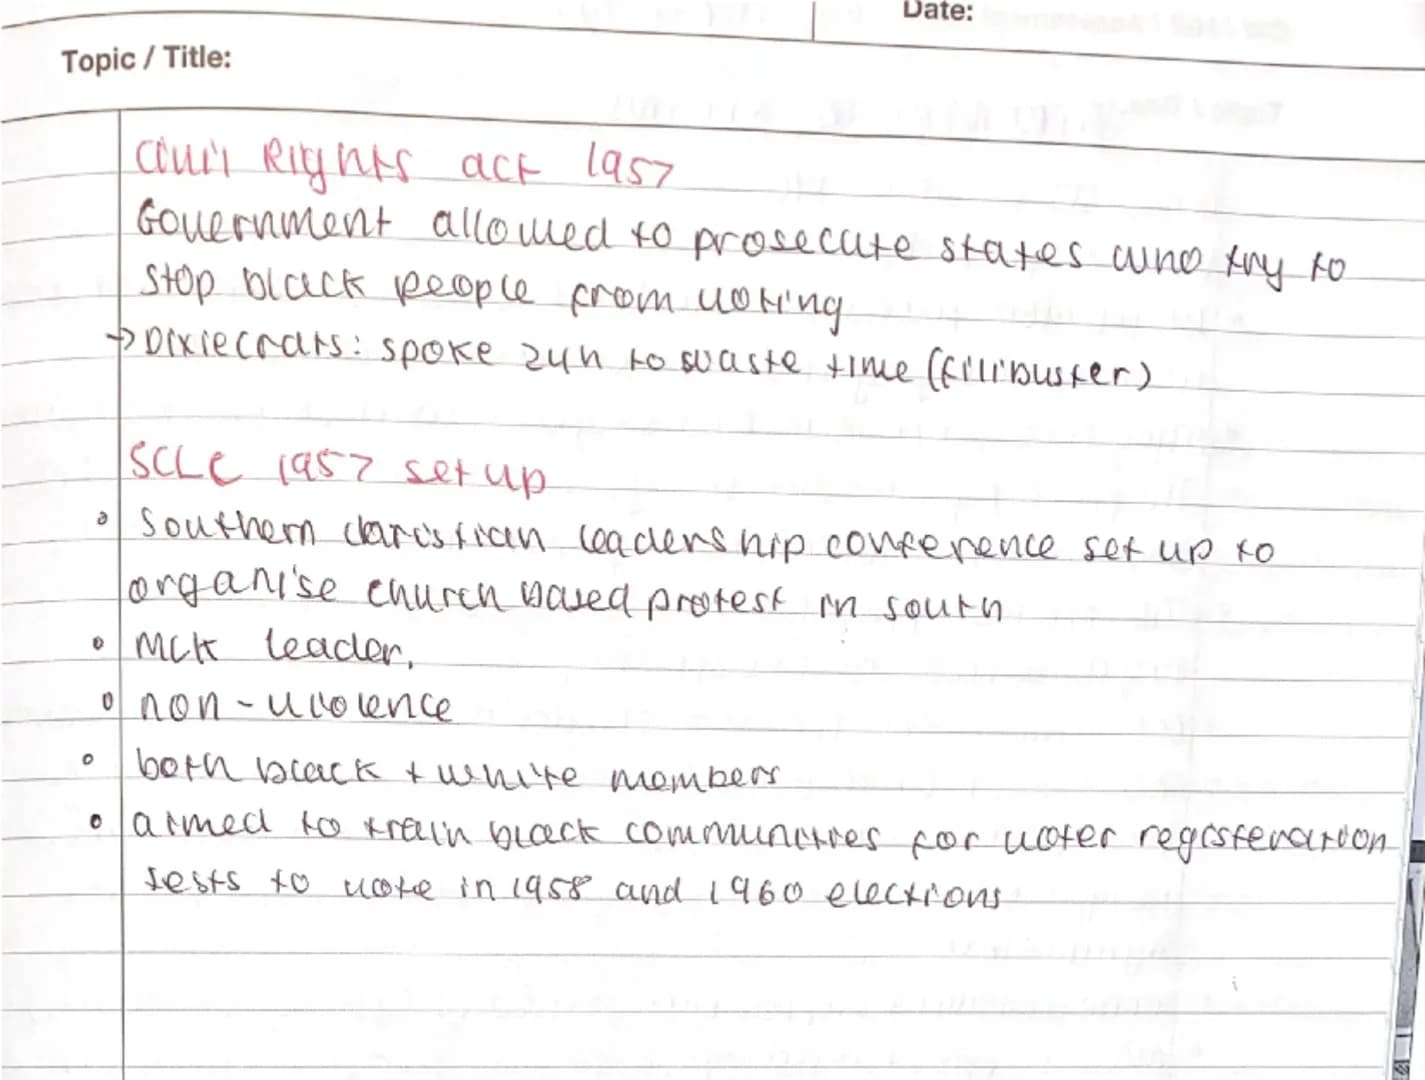 Date:
Topic / Title:
Civil Rights act 1957
Government allowed to prosecute states who try to
stop black people from voting
→ Dixiecrats: spoke 24h to waste time (filibuster)
SCLC 1957 set up
• Southern christian leadership conference set up to
organise church based protest in south
• MLK leader.
• non-violence
• both black + white members
• aimed to train black communities for voter registeration
tests to vote in 1958 and 1960 elections